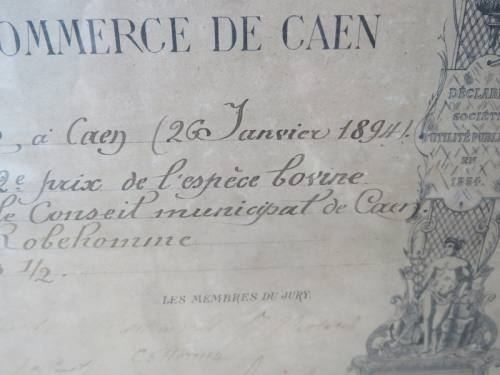 COMMERCE DE CAEN
à Caen (26 Janvier 1894).
2e prix de l'espèce bovine
le Conseil municipal de Caen.
Robehomme
1/2.
LES MEMBRES DU JURY.
DÉCLARÉE
SOCIÉTÉ
UTILITÉ PUBLIQUE
EN